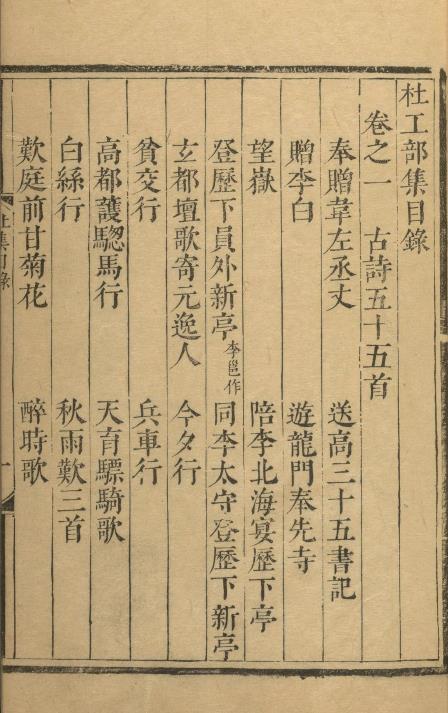 杜工部集目錄
卷之一　古詩五十五首
奉贈韋左丞丈　送高三十五書記
贈李白　遊龍門奉先寺
望嶽　陪李北海宴歷下亭
登歷下員外新亭李邕作　同李太守登歷下新亭
玄都壇歌寄元逸人　今夕行
貧交行　兵車行
高都護驄馬行　天育驃騎歌
白絲行　秋雨歎三首
歎庭前甘菊花　醉時歌
杜集目錄
一